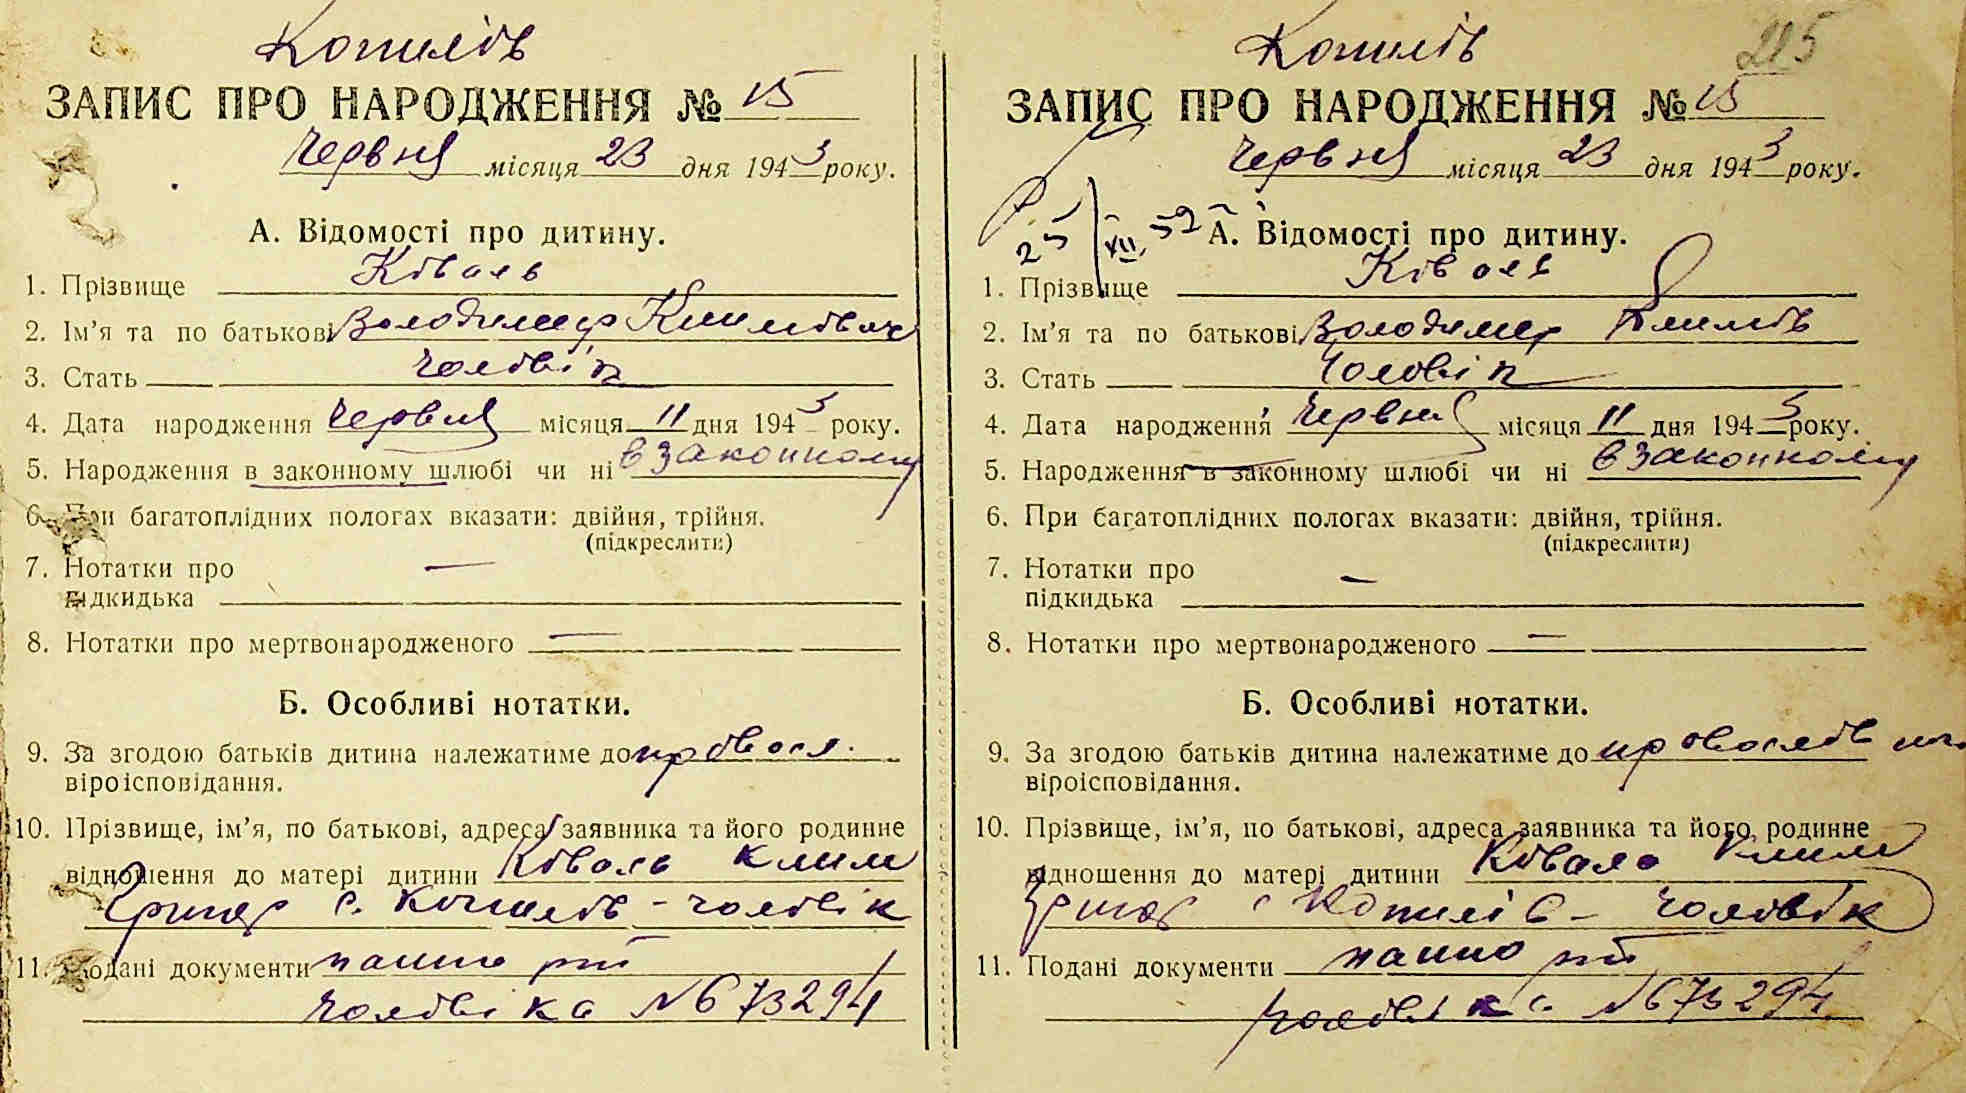 Копилів
ЗАПИС ПРО НАРОДЖЕННЯ № 15
Червня місяця 23 дня 1943 року.
А. Відомості про дитину.
1. Прізвище Коваль
2. Ім'я та по батькові Володимир Климович
3. Стать чоловіч
4. Дата народження Червня місяця 11 дня 1943 року.
5. Народження в законному шлюбі чи ні в законному
6. При багатоплідних пологах вказати: двійня, трійня.
(підкреслити)
7. Нотатки про —
підкидька
8. Нотатки про мертвонародженого —
Б. Особливі нотатки.
9. За згодою батьків дитина належатиме до правосл.
віроісповідання.
10. Прізвище, ім'я, по батькові, адреса заявника та його родинне
відношення до матері дитини Коваль Клим
Григор с. Копилів - чоловік
11. Подані документи пашпорт
чоловіка № 673294
Копилів 215
ЗАПИС ПРО НАРОДЖЕННЯ № 15
Червня місяця 23 дня 1943 року.
25/XII 52
А. Відомості про дитину.
1. Прізвище Коваль
2. Ім'я та по батькові Володимир Климов
3. Стать Чоловіч
4. Дата народження Червня місяця 11 дня 1943 року.
5. Народження в законному шлюбі чи ні в законному
6. При багатоплідних пологах вказати: двійня, трійня.
(підкреслити)
7. Нотатки про —
підкидька
8. Нотатки про мертвонародженого —
Б. Особливі нотатки.
9. За згодою батьків дитина належатиме до православ
віроісповідання.
10. Прізвище, ім'я, по батькові, адреса заявника та його родинне
відношення до матері дитини Коваль Клим
Григор с Копилів - чоловік
11. Подані документи пашпорт
чоловіка № 673294